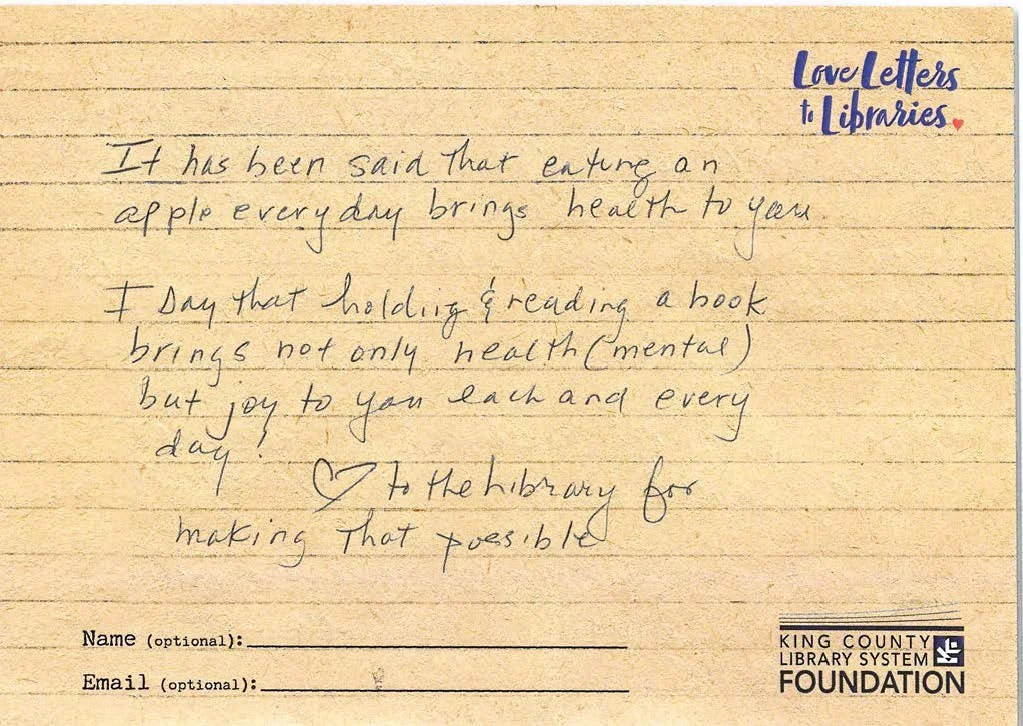 Love Letters
to Libraries
It has been said that eating an
apple everyday brings health to you.
I say that holding & reading a book
brings not only health (mental)
but joy to you each and every
day!
♡ to the Library for
making that possible
Name (optional):
Email (optional):
KING COUNTY
LIBRARY SYSTEM
FOUNDATION